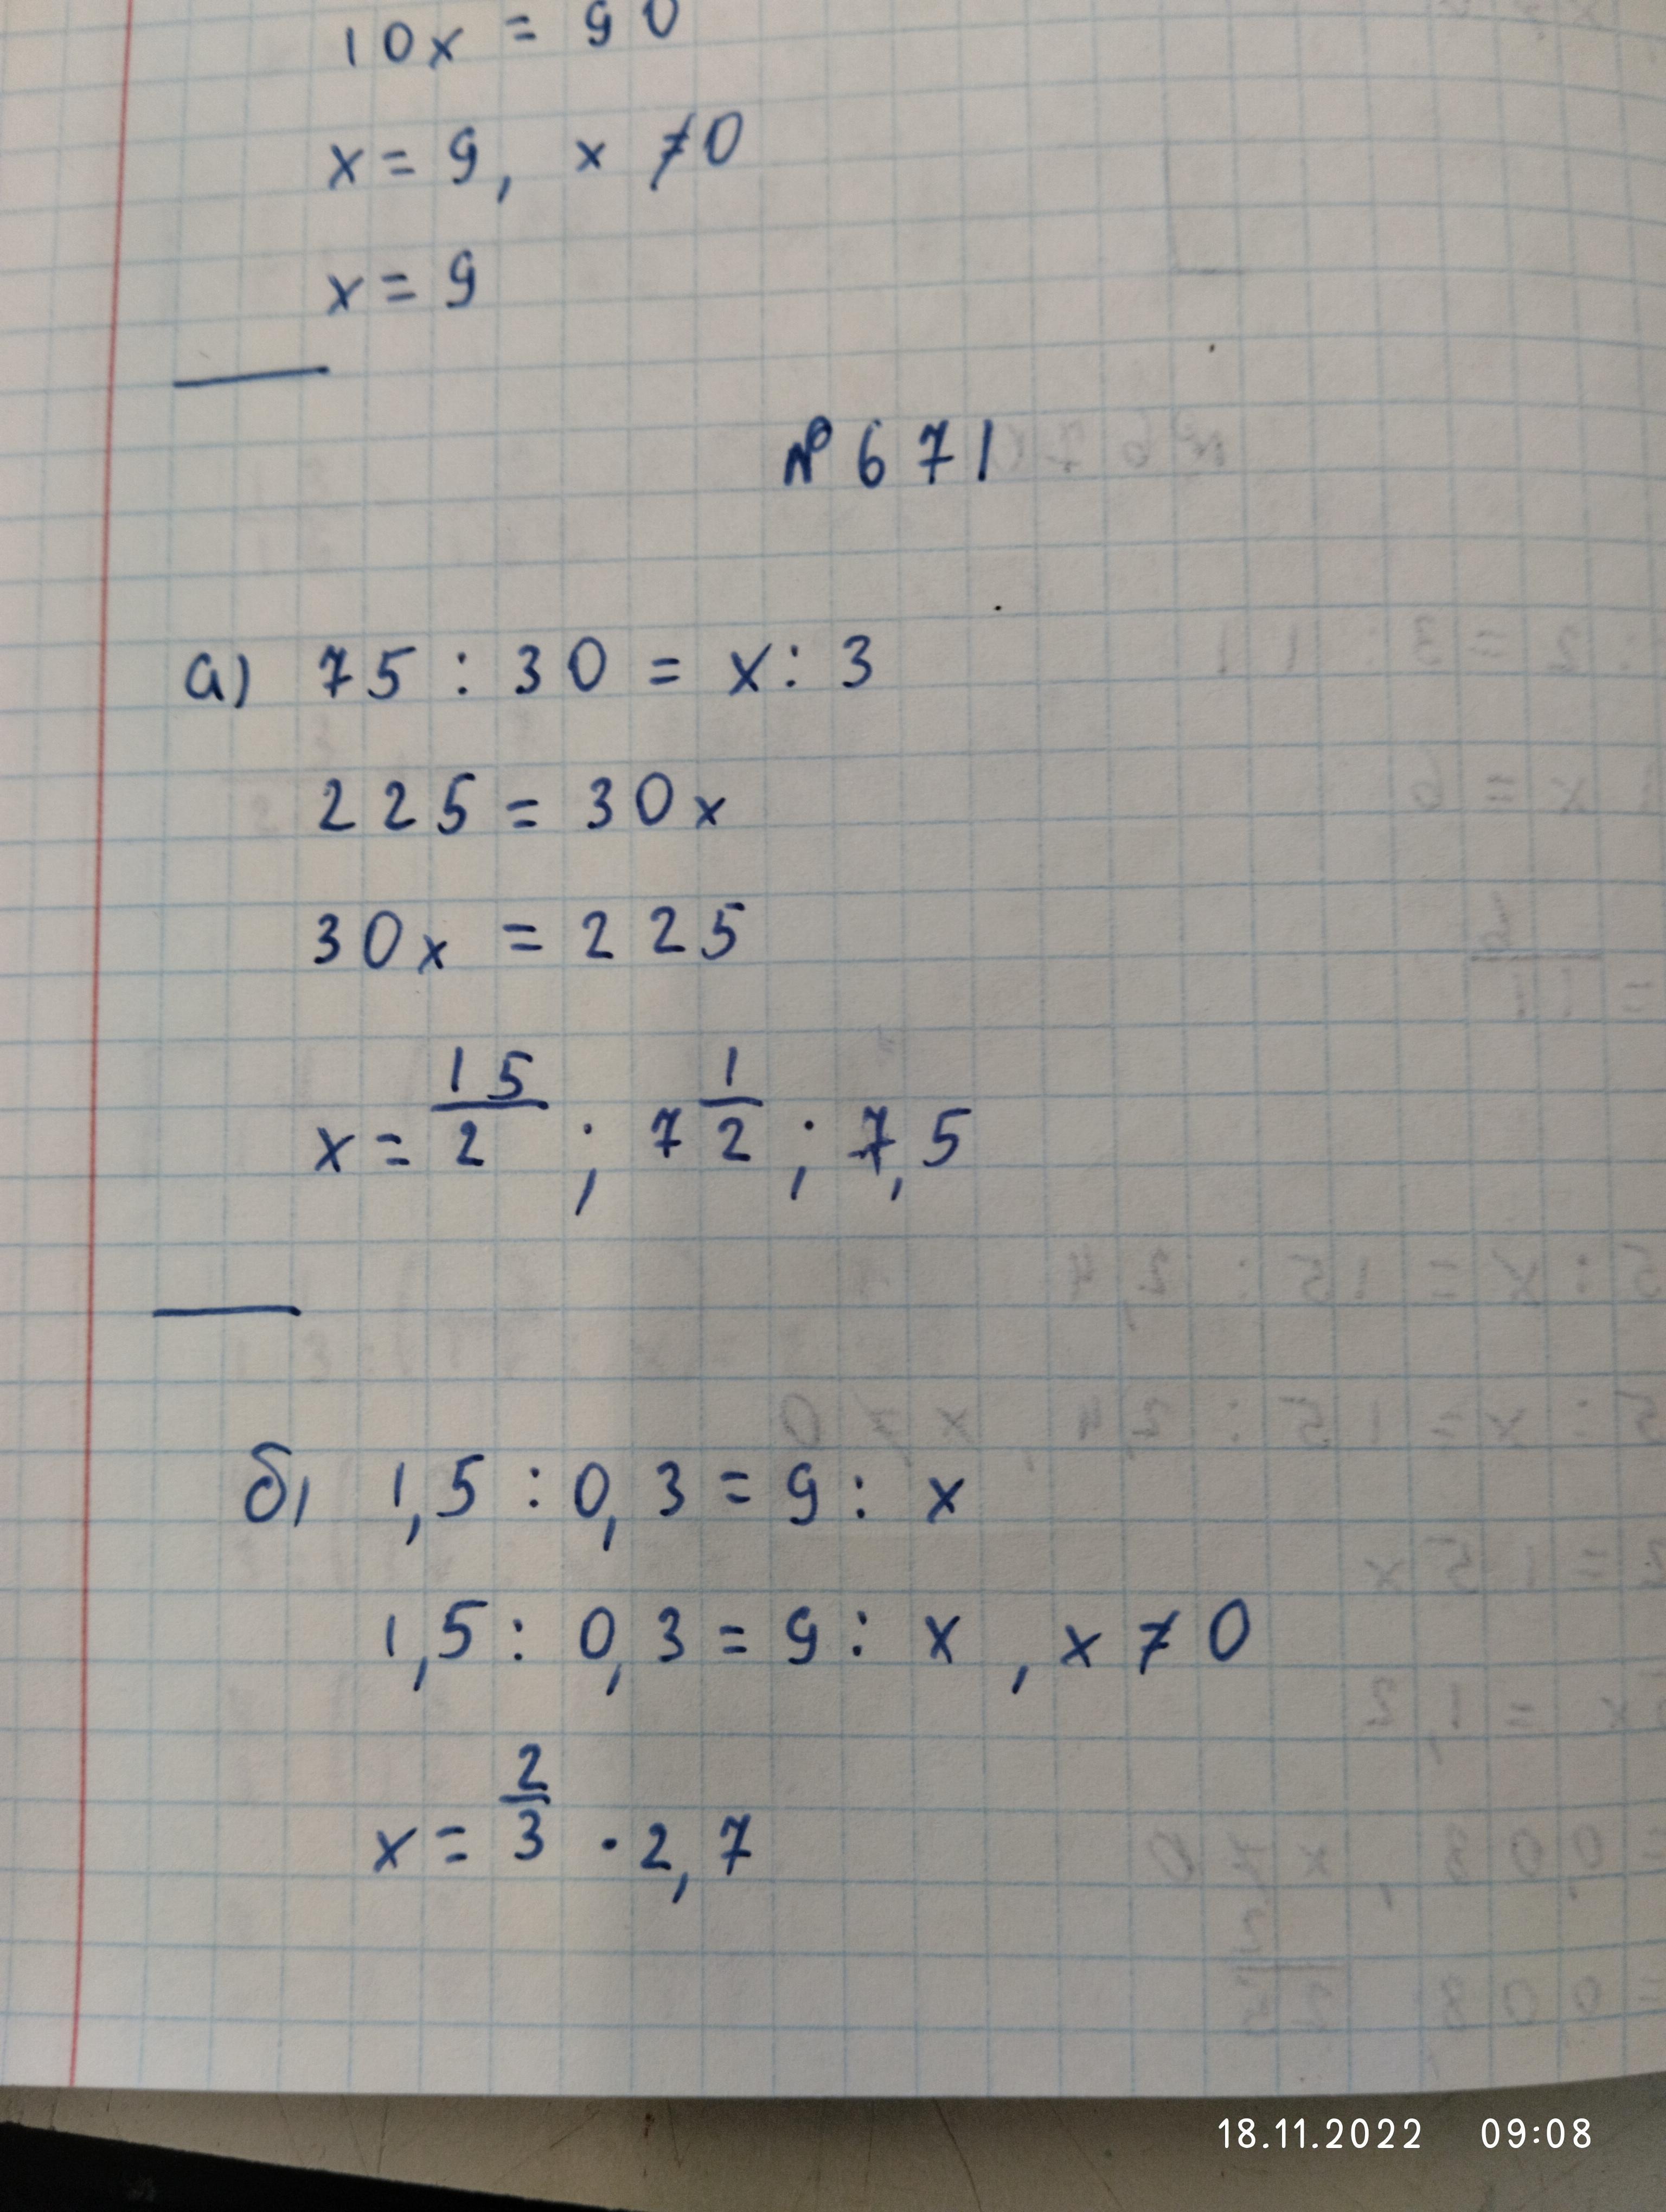 10x = 90
x = 9, x ≠ 0
x = 9
№ 671
а) 75 : 30 = x : 3
225 = 30x
30x = 225
x = 15/2 ; 7 1/2 ; 7,5
б) 1,5 : 0,3 = 9 : x
1,5 : 0,3 = 9 : x , x ≠ 0
x = 2/3 · 2,7
18.11.2022 09:08